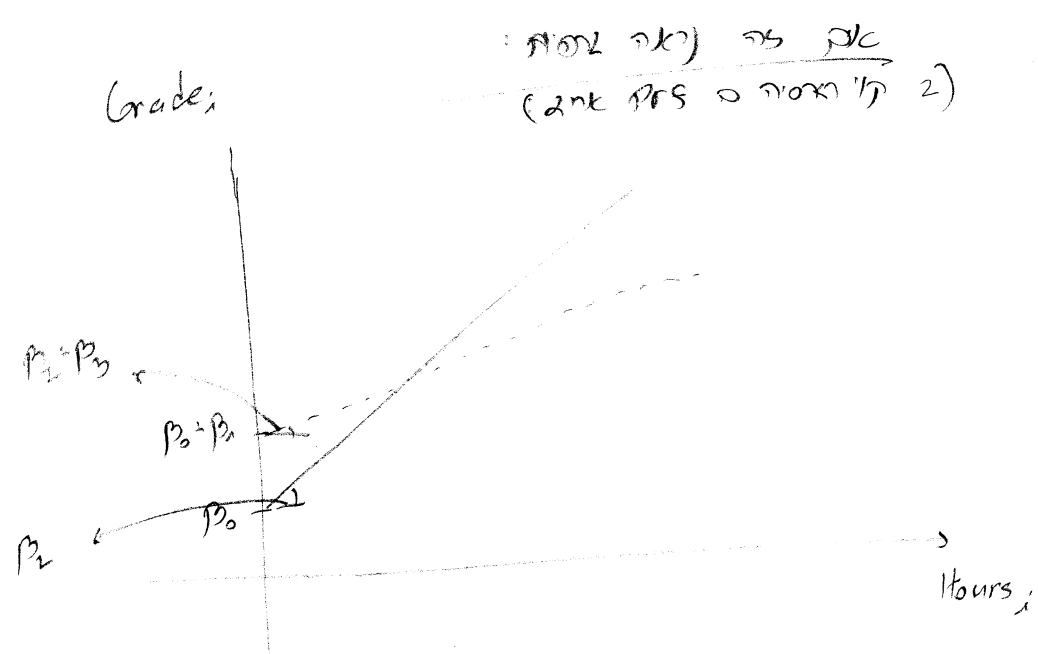 איך זה נראה גרפית :
(2 קוי רגרסיה ב אחד)
Gradeᵢ
β₂+β₃
β₀+β₁
β₀
β₂
Hoursᵢ